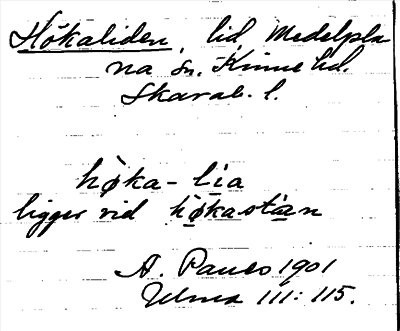 Hökaliden, lid Medelpla
na sn. Kinne hd.
Skarab. l.
hø̀ka-lia
ligger vid hø̀kastàn
A. Paulo 1901
Ulma 111: 115.